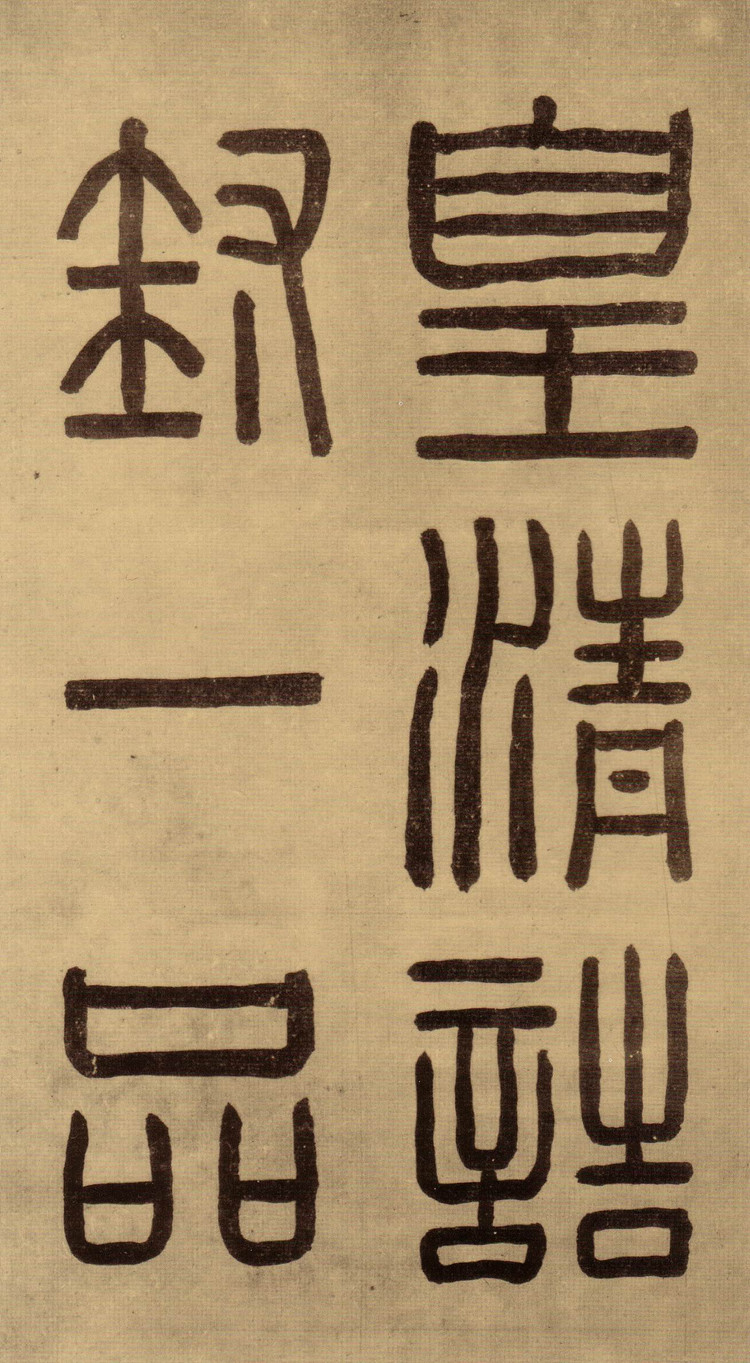 皇清誥
封一品